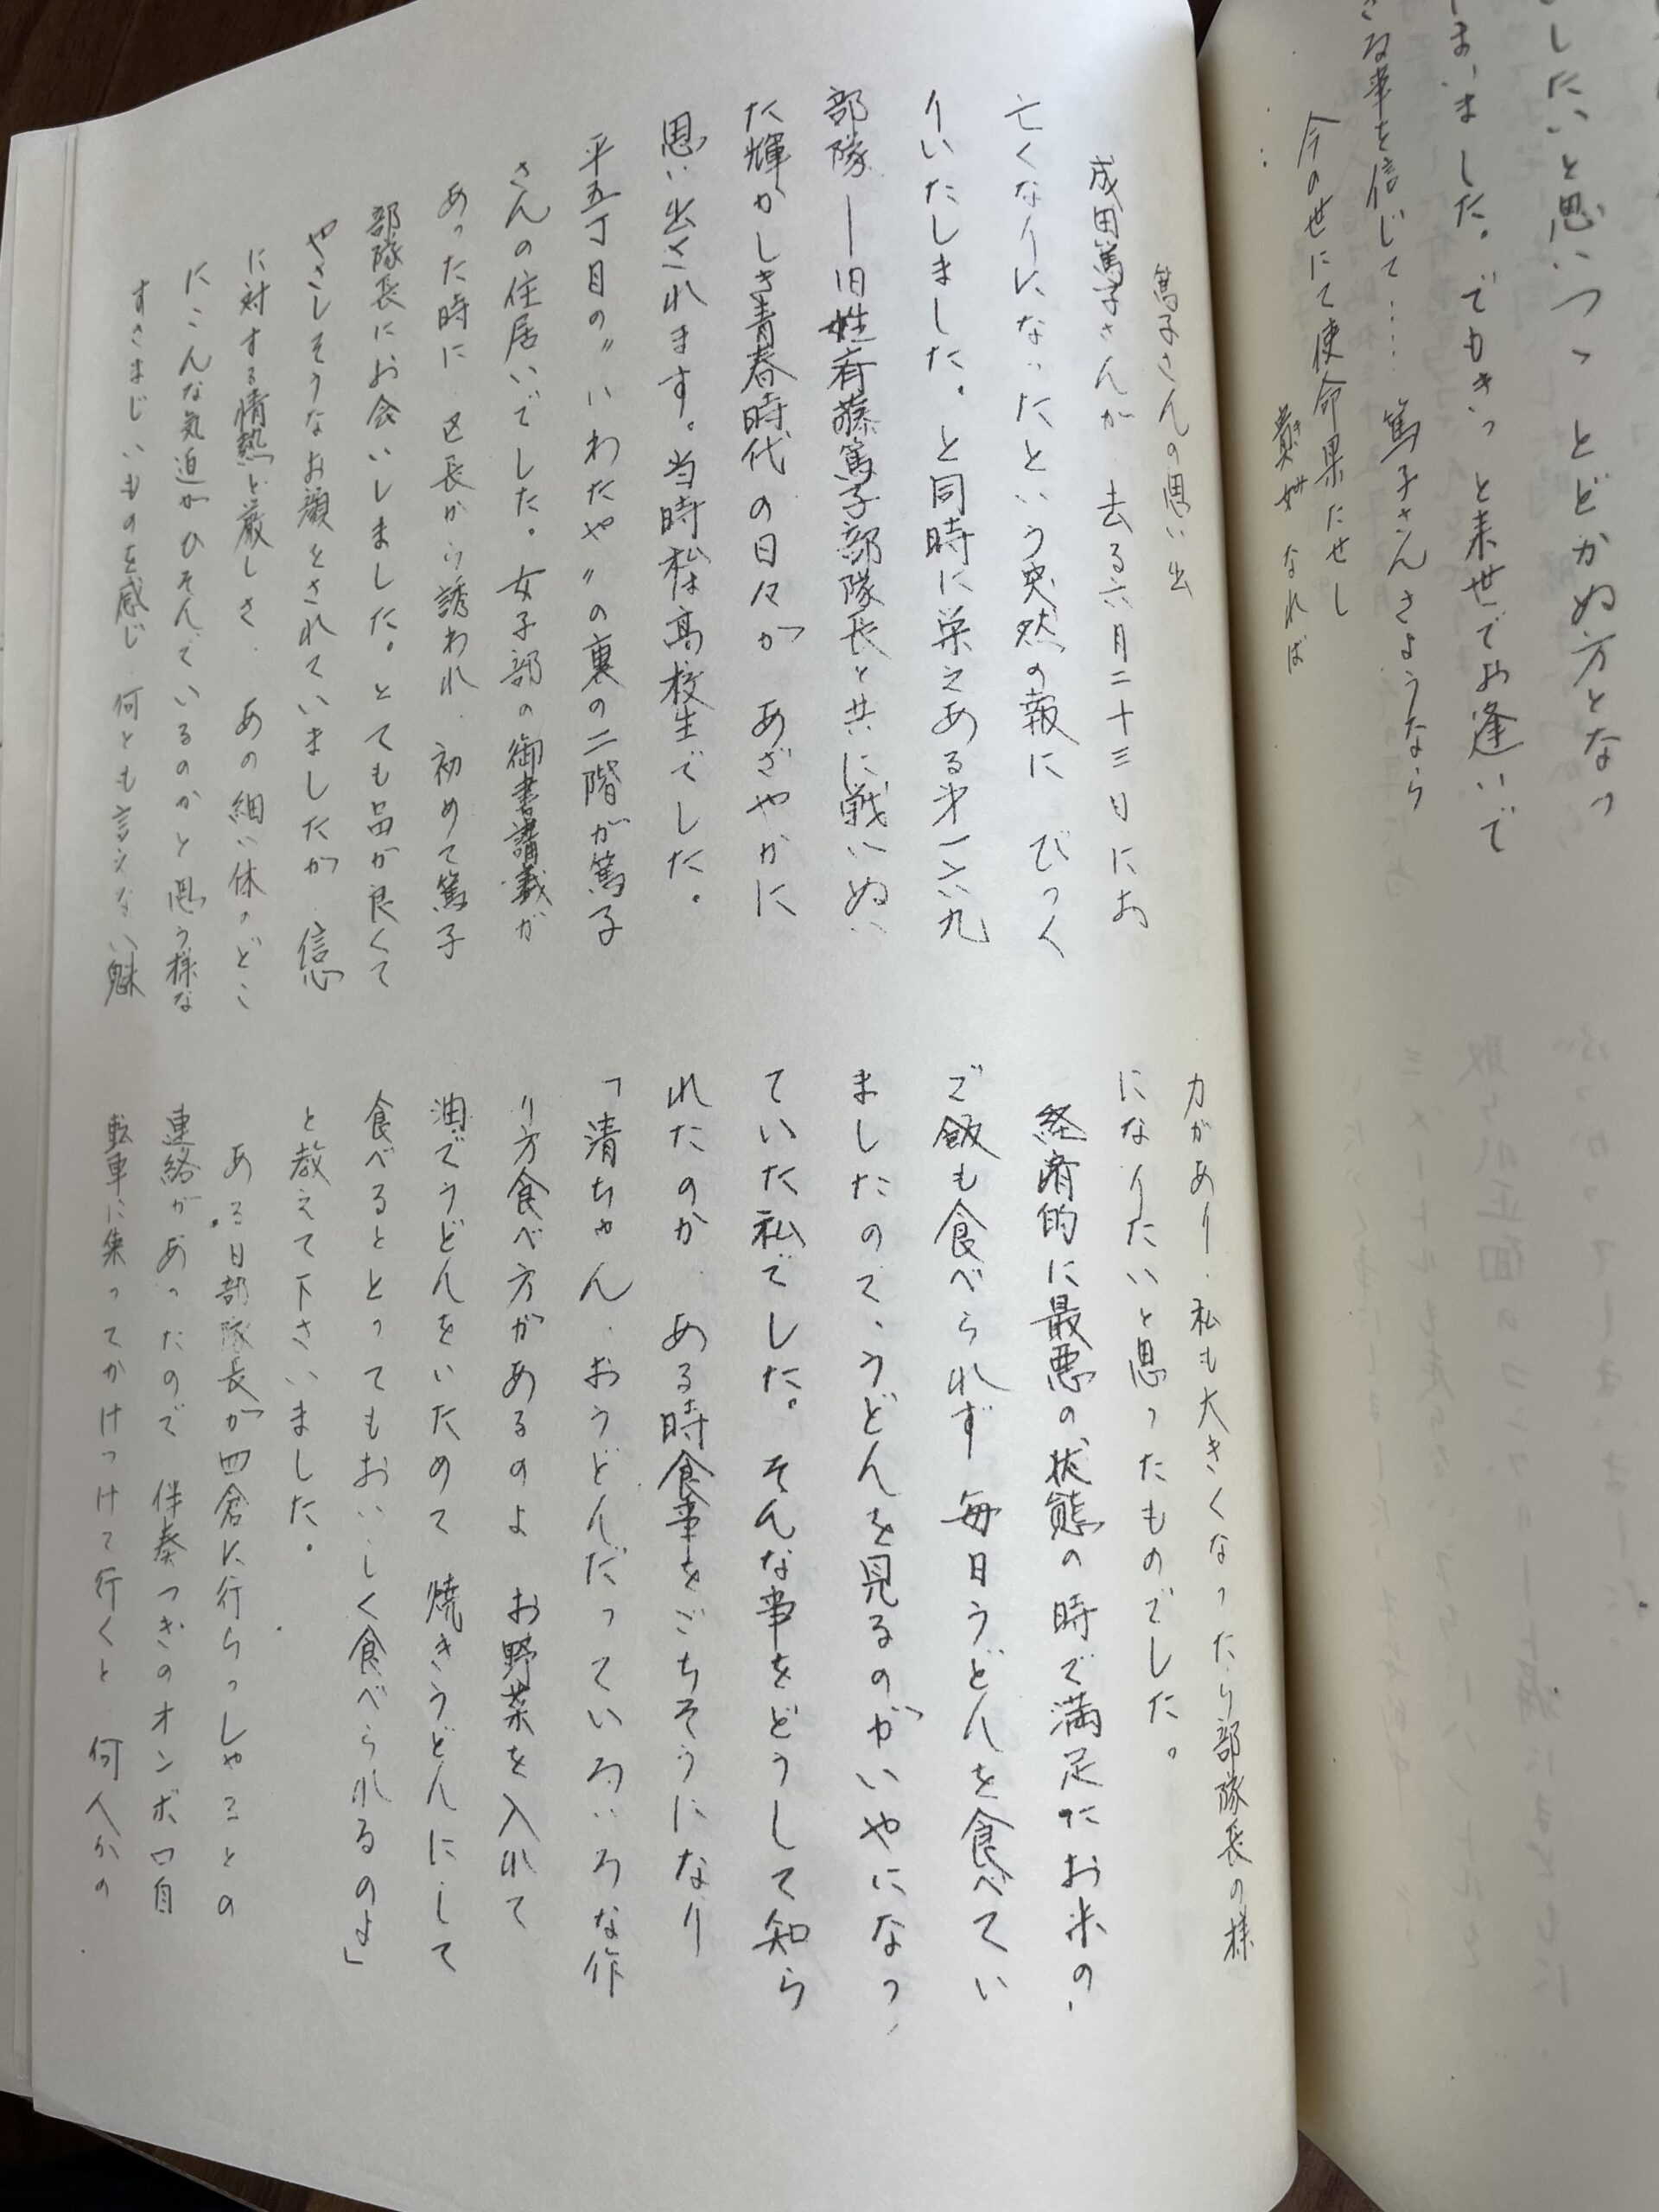 したいと思いつつ とどかぬ方となっ
しまいました。でもきっと来世でお逢いで
きる事を信じて…… 篤子さんさようなら
今の世にて使命果たせし
貴女なれば
き
篤子さんの思い出
成田篤子さんが 去る六月二十三日にお
亡くなりになったという突然の報に びっく
りいたしました。と同時に栄えある第一二六九
部隊―旧姓斉藤篤子部隊長と共に戦いぬい
た輝かしき青春時代の日々が あざやかに
思い出されます。当時私は高校生でした。
平五丁目の〃いわたや〃の裏の二階が篤子
さんの住居いでした。女子部の御書講義が
あった時に 区長から誘われ 初めて篤子
部隊長にお会いしました。とても品が良くて
やさしそうなお顔をされていましたが 信心
に対する情熱と厳しさ、あの細い体のどこ
にこんな気迫がひそんでいるのかと思う様な
すさまじいものを感じ 何とも言えない魅
力があり、私も大きくなったら部隊長の様
になりたいと思ったものでした。
経済的に最悪の状態の時で満足なお米の
ご飯も食べられず 毎日うどんを食べてい
ましたので、うどんを見るのがいやになっ
ていた私でした。そんな事をどうして知ら
れたのか、ある時食事をごちそうになり
「清ちゃん、おうどんだっていろいろな作
り方食べ方があるのよ お野菜を入れて
油でうどんをいためて 焼きうどんにして
食べるととってもおいしく食べられるのよ」
と教えて下さいました。
ある日部隊長が四倉に行らっしゃるとの
連絡があったので 伴奏つきのオンボロ自
転車に乗ってかけつけて行くと 何人かの